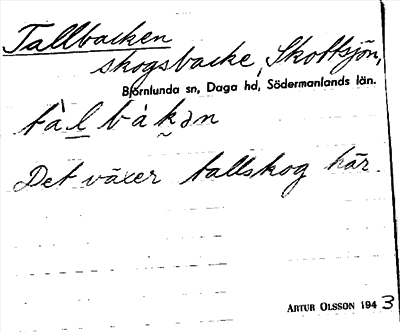 Tallbacken
skogsbacke, Skottsjön,
Björnlunda sn, Daga hd, Södermanlands län.
tàl bákən
Det växer tallskog här.
ARTUR OLSSON 1943